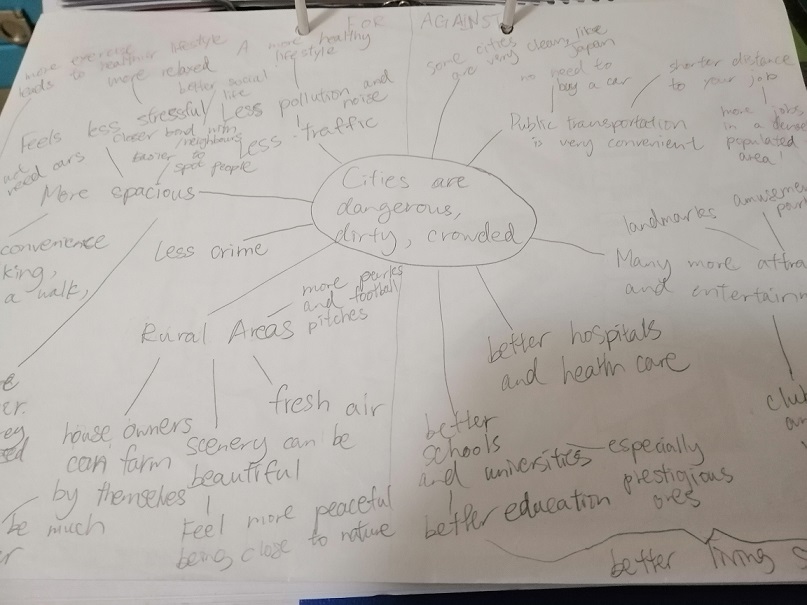 FOR
AGAINST
more exercise
leads to healthier lifestyle
more relaxed
A more healthy
lifestyle
better social
life
Feels less stressful
closer bond with
neighbours
easier to
spot people
Less pollution and
noise
Less traffic
not
need cars
More spacious
convenience
king,
a walk,
Less crime
Rural Areas
more parks
and football
pitches
house owners
can farm
by themselves
be much
scenery can be
beautiful
Feel more peaceful
being close to nature
fresh air
Cities are
dangerous,
dirty, crowded
some cities
are very clean, like
Japan
no need to
buy a car
shorter distance
to your job
Public transportation
is very convenient
more jobs
in a dense
populated
area!
landmarks
Many more
and
better hospitals
and health care
better
schools
and universities
especially
prestigious
ones
better education
better living